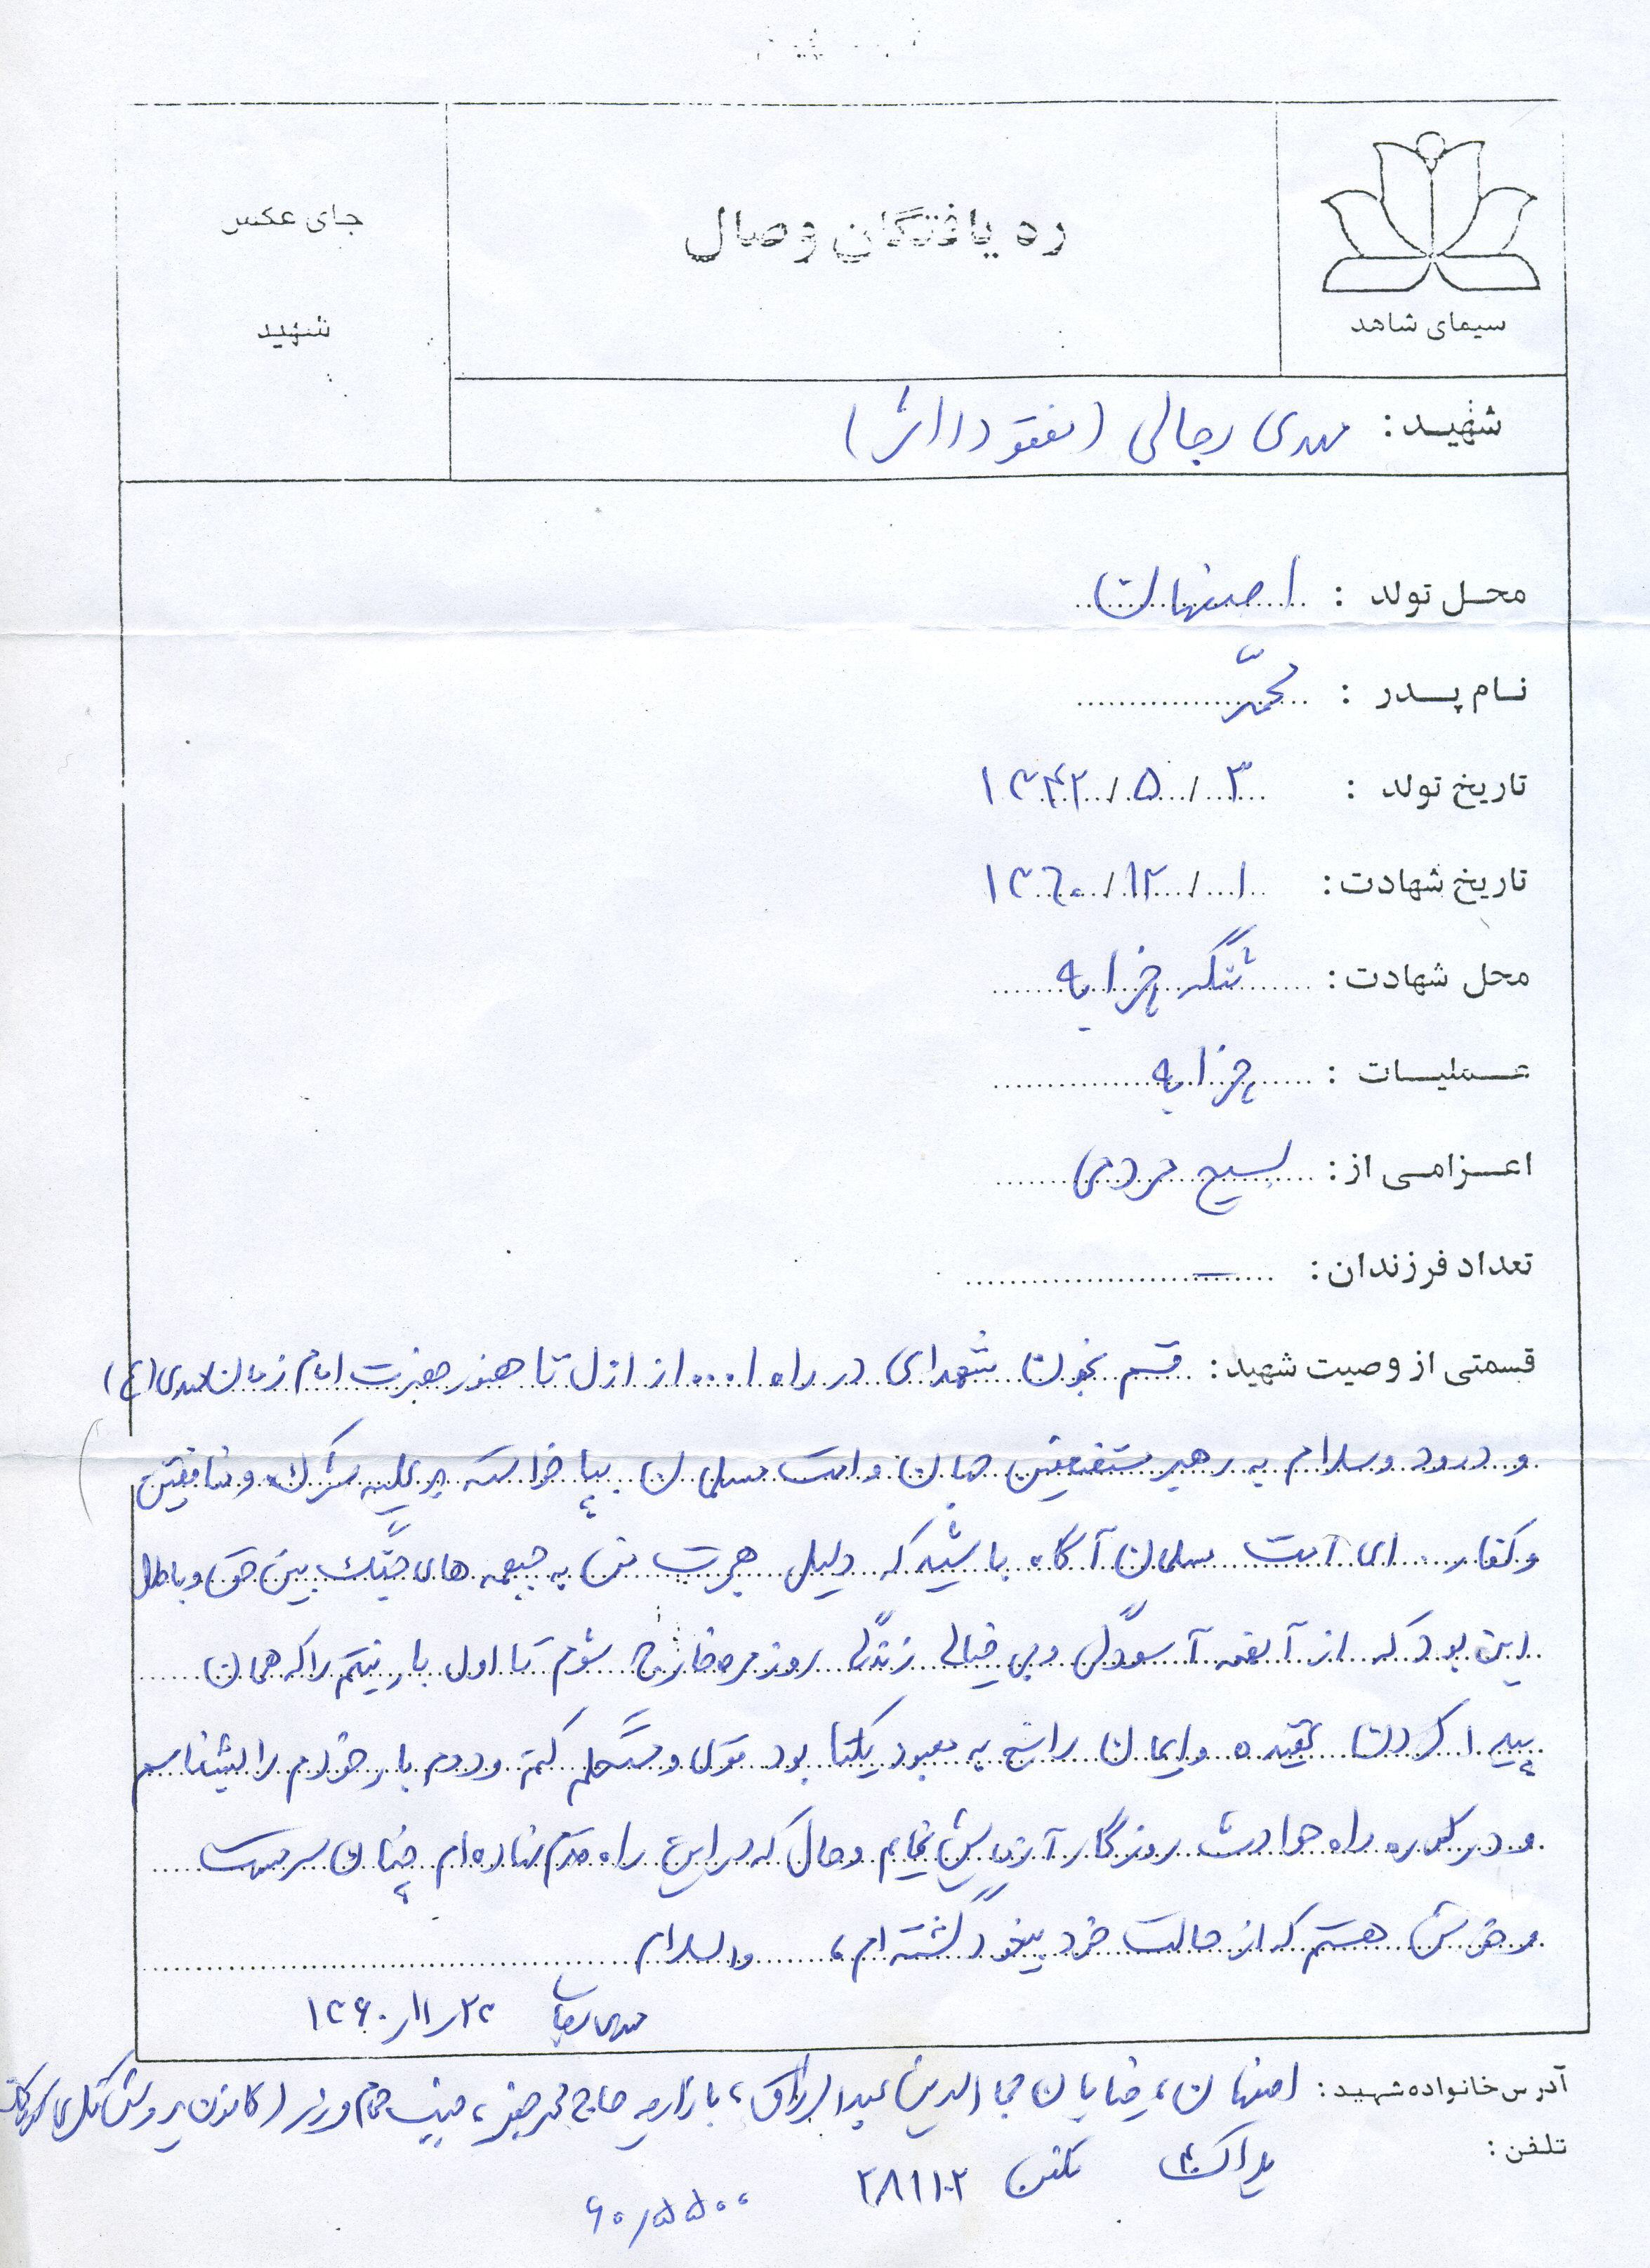 ره یافتگان وصال
سیمای شاهد
جای عکس
شهید
شهید: مهدی رجالی (مفقودالاثر)
محل تولد: اصفهان
نام پدر: محمّد
تاریخ تولد: ۳/۵/۱۳۴۲
تاریخ شهادت: ۱/۱۲/۱۳۶۰
محل شهادت: تنگه چزابه
عملیات: چزابه
اعزامی از: بسیج مردمی
تعداد فرزندان: —
قسمتی از وصیت شهید: قسم بخون شهدای در راه ا... از ازل تا هنوز حضرت امام زمان مهدی (ع)
و درود و سلام به رهبر مستضعفین جهان و امت مسلمان بپا خواسته بر علیه شرک و منافقین
و کفار. ای امت مسلمان آگاه باشید که دلیل هجرت من به جبهه های جنگ بین حق و باطل
این بود که از آنهمه آسودگی و بی خیالی زندگی روزمره خارج شوم تا اول بار نیتم را که همان
پیدا کردن عقیده و ایمان راسخ به معبود یکتا بود قوی و مستحکم کنم و دوم بار خودم را بشناسم
و در کوره راه حوادث روزگار آزمایش نمایم و حال که در این راه قدم نهاده‌ام چنان سرمست
و خوش هستم که از حالت خود بیخود گشته ام، والسلام
مهدی رجالی ۱۳۶۰/۱۱/۲۳
آدرس خانواده شهید: اصفهان، خیابان جمال الدین عبدالرزاق، بازارچه حاج محمدجعفر، جنب حمام وزیر (کانون پرورش فکری کودکان
تلفن:
پلاک تلفن ۲۸۱۱۰۲
۶۰/۵۵۰۰